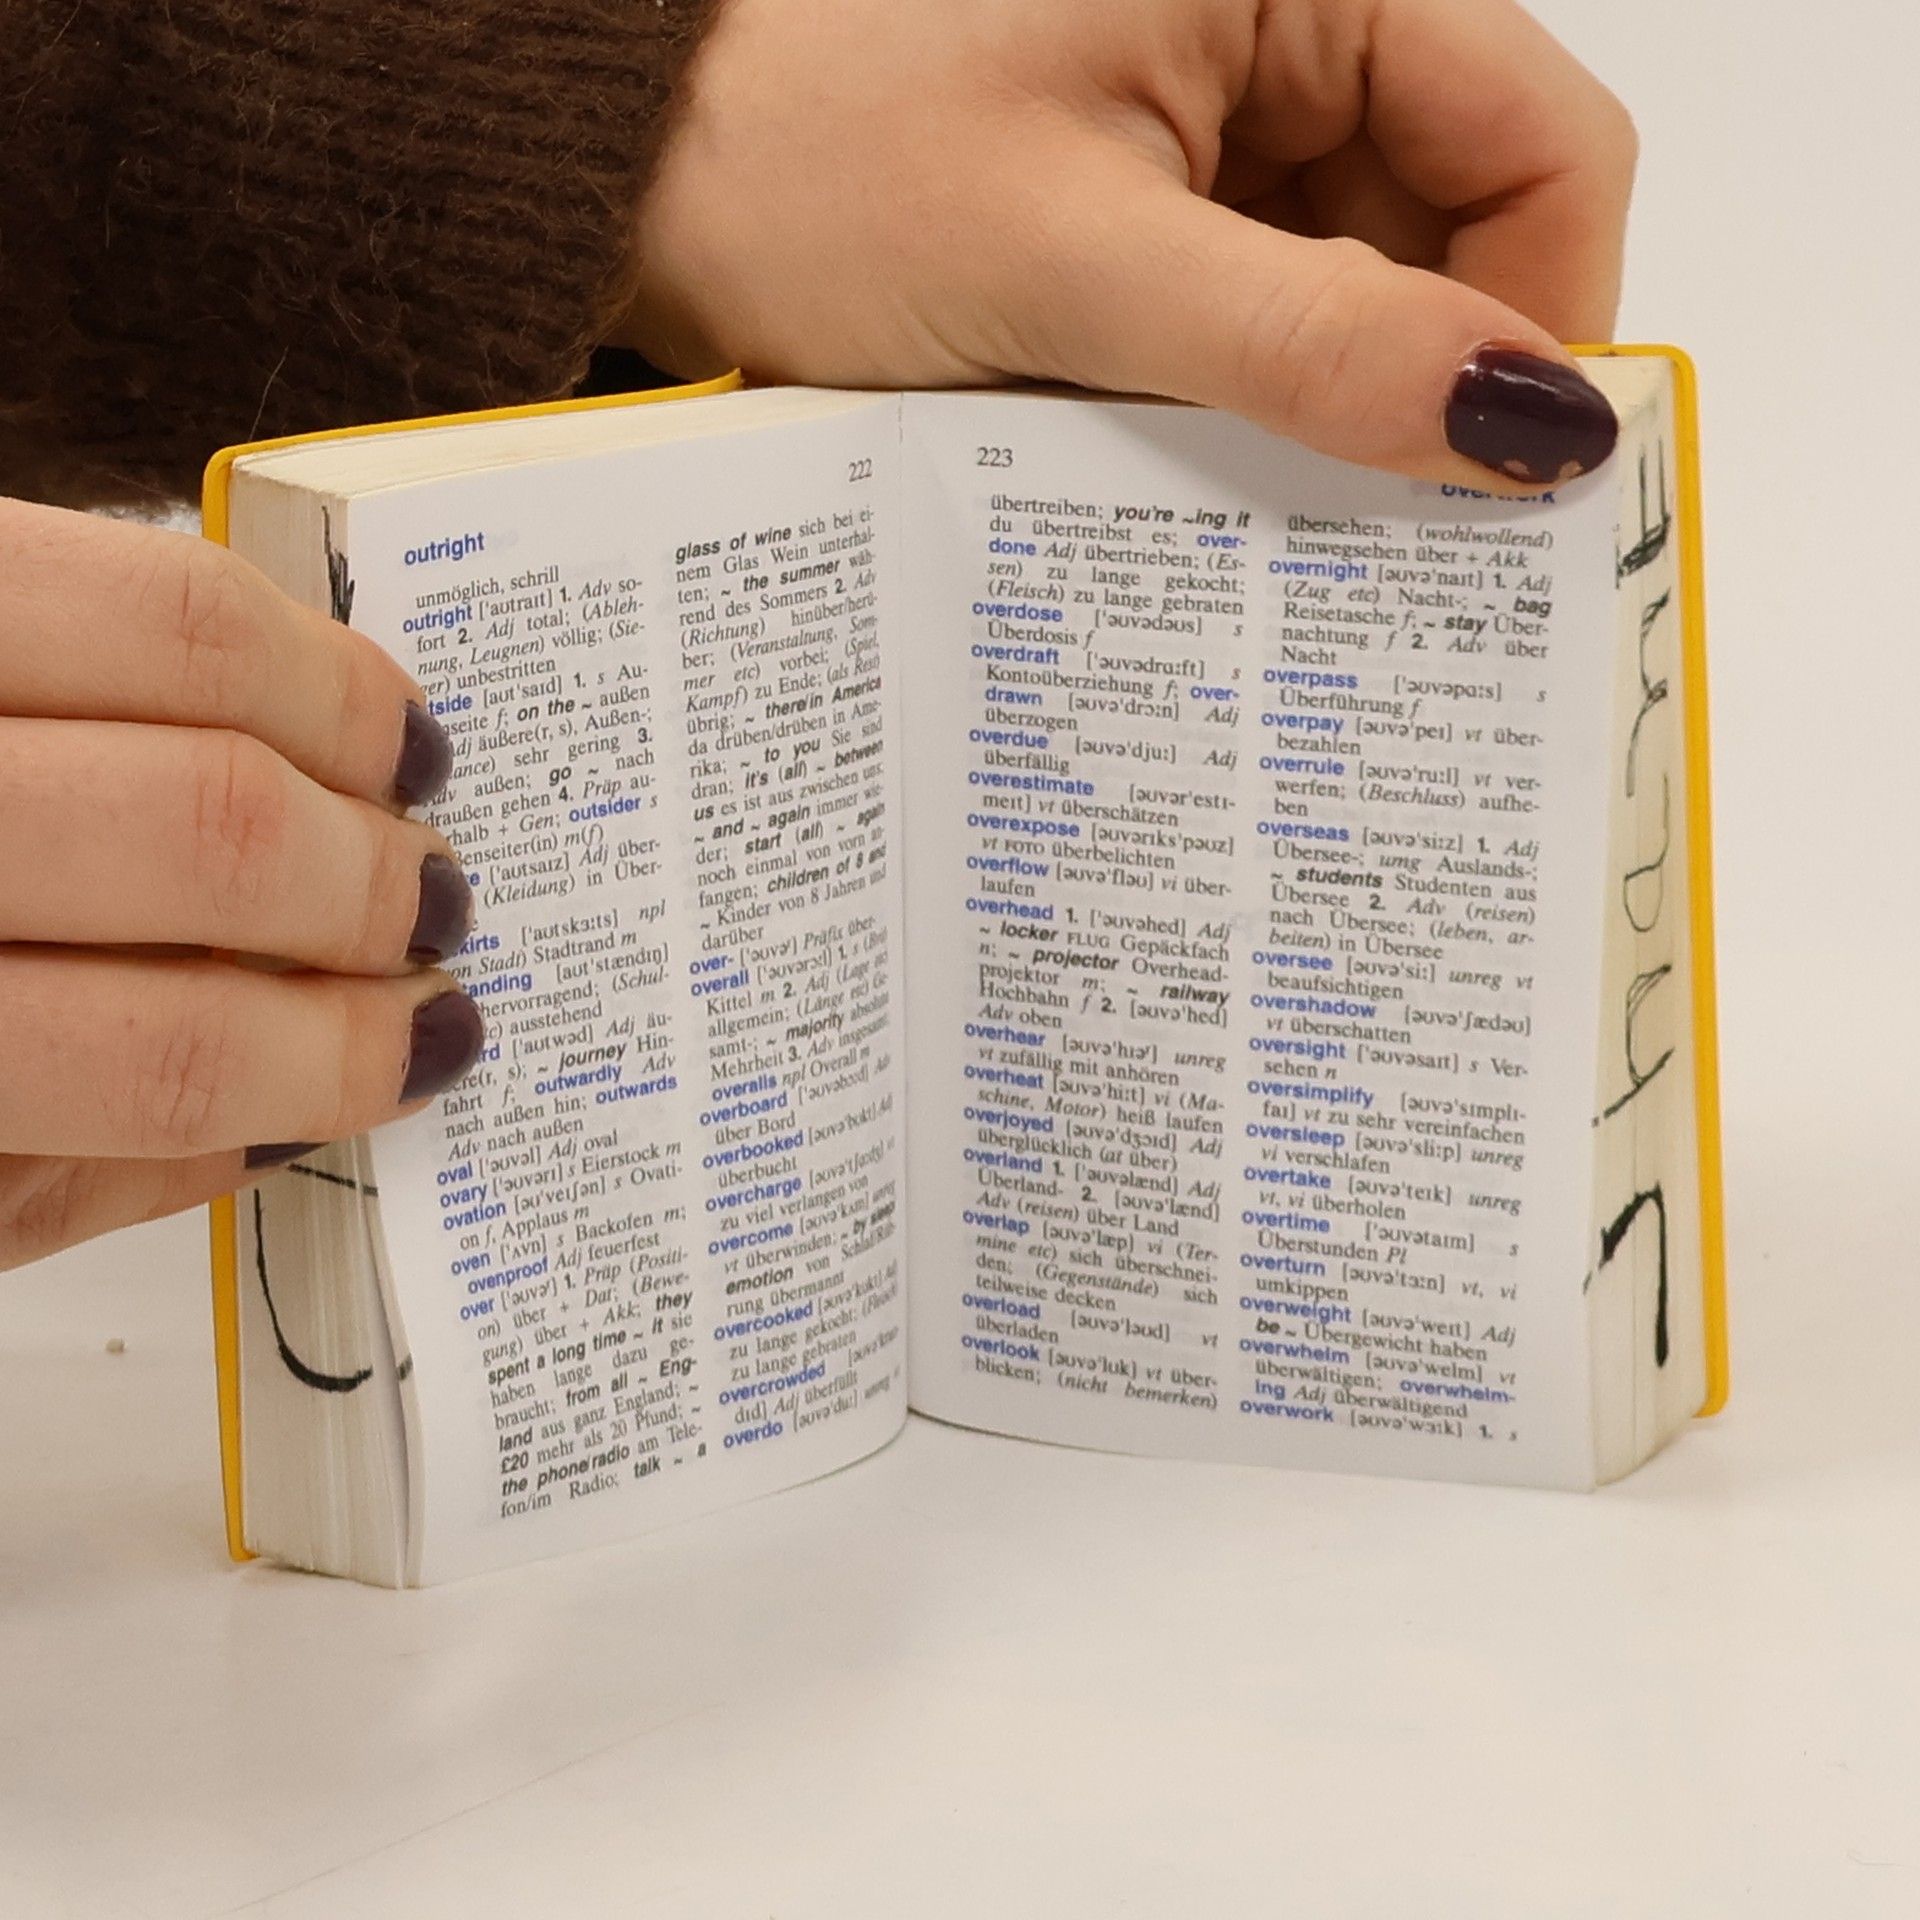 outright
222
unmöglich, schrill
outright ['aʊtraɪt] 1. Adv so-
fort 2. Adj total; (Ableh-
nung, Leugnen) völlig; (Sie-
ger) unbestritten
tside [aʊt'saɪd] 1. s Au-
nseite f; on the ~ außen
dj äußere(r, s), Außen-;
ance) sehr gering 3.
Adv außen; go ~ nach
draußen gehen 4. Präp au-
rhalb + Gen; outsider s
ßenseiter(in) m(f)
e ['aʊtsaɪz] Adj über-
(Kleidung) in Über-
e
kirts ['aʊtskɜːts] npl
on Stadt) Stadtrand m
tanding [aʊt'stændɪŋ]
hervorragend; (Schul-
c) ausstehend
rd ['aʊtwəd] Adj äu-
ere(r, s); ~ journey Hin-
fahrt f; outwardly Adv
nach außen hin; outwards
Adv nach außen
oval ['əʊvəl] Adj oval
ovary ['əʊvərɪ] s Eierstock m
ovation [əʊ'veɪʃən] s Ovati-
on f, Applaus m
oven ['ʌvn] s Backofen m;
ovenproof Adj feuerfest
over ['əʊvəʳ] 1. Präp (Positi-
on) über + Dat; (Bewe-
gung) über + Akk; they
spent a long time ~ it sie
haben lange dazu ge-
braucht; from all ~ Eng-
land aus ganz England; ~
£20 mehr als 20 Pfund; ~
the phone/radio am Tele-
fon/im Radio; talk ~ a
glass of wine sich bei ei-
nem Glas Wein unterhal-
ten; ~ the summer wäh-
rend des Sommers 2. Adv
(Richtung) hinüber/herü-
ber; (Veranstaltung, Som-
mer etc) vorbei; (Spiel,
Kampf) zu Ende; (als Rest)
übrig; ~ there/in America
da drüben/drüben in Ame-
rika; ~ to you Sie sind
dran; it's (all) ~ between
us es ist aus zwischen uns;
~ and ~ again immer wie-
der; start (all) ~ again
noch einmal von vorn an-
fangen; children of 8 and
~ Kinder von 8 Jahren und
darüber
over- ['əʊvəʳ] Präfix über-
overall ['əʊvərɔːl] 1. s (Brit)
Kittel m 2. Adj (Lage etc)
allgemein; (Länge etc) Ge-
samt-; ~ majority absolute
Mehrheit 3. Adv insgesamt;
overalls npl Overall m
overboard ['əʊvəbɔːd] Adv
über Bord
overbooked [əʊvə'bʊkt] Adj
überbucht
overcharge [əʊvə'tʃɑːdʒ] vt
zu viel verlangen von
overcome [əʊvə'kʌm] unreg
vt überwinden; ~ by sleep
emotion von Schlaf/Rüh-
rung übermannt
overcooked [əʊvə'kʊkt] Adj
zu lange gekocht; (Fleisch)
zu lange gebraten
overcrowded [əʊvə'kraʊ
dɪd] Adj überfüllt
overdo [əʊvə'duː] unreg vt
223
übertreiben; you're ~ing it
du übertreibst es; over-
done Adj übertrieben; (Es-
sen) zu lange gekocht;
(Fleisch) zu lange gebraten
overdose ['əʊvədəʊs] s
Überdosis f
overdraft ['əʊvədrɑːft] s
Kontoüberziehung f; over-
drawn [əʊvə'drɔːn] Adj
überzogen
overdue [əʊvə'djuː] Adj
überfällig
overestimate [əʊvər'estɪ-
meɪt] vt überschätzen
overexpose [əʊvərɪks'pəʊz]
vt FOTO überbelichten
overflow [əʊvə'fləʊ] vi über-
laufen
overhead 1. ['əʊvəhed] Adj
~ locker FLUG Gepäckfach
n; ~ projector Overhead-
projektor m; ~ railway
Hochbahn f 2. [əʊvə'hed]
Adv oben
overhear [əʊvə'hɪəʳ] unreg
vt zufällig mit anhören
overheat [əʊvə'hiːt] vi (Ma-
schine, Motor) heiß laufen
overjoyed [əʊvə'dʒɔɪd] Adj
überglücklich (at über)
overland 1. ['əʊvəlænd] Adj
Überland- 2. [əʊvə'lænd]
Adv (reisen) über Land
overlap [əʊvə'læp] vi (Ter-
mine etc) sich überschnei-
den; (Gegenstände) sich
teilweise decken
overload [əʊvə'ləʊd] vt
überladen
overlook [əʊvə'lʊk] vt über-
blicken; (nicht bemerken)
übersehen; (wohlwollend)
hinwegsehen über + Akk
overnight [əʊvə'naɪt] 1. Adj
(Zug etc) Nacht-; ~ bag
Reisetasche f; ~ stay Über-
nachtung f 2. Adv über
Nacht
overpass ['əʊvəpɑːs] s
Überführung f
overpay [əʊvə'peɪ] vt über-
bezahlen
overrule [əʊvə'ruːl] vt ver-
werfen; (Beschluss) aufhe-
ben
overseas [əʊvə'siːz] 1. Adj
Übersee-; umg Auslands-;
~ students Studenten aus
Übersee 2. Adv (reisen)
nach Übersee; (leben, ar-
beiten) in Übersee
oversee [əʊvə'siː] unreg vt
beaufsichtigen
overshadow [əʊvə'ʃædəʊ]
vt überschatten
oversight ['əʊvəsaɪt] s Ver-
sehen n
oversimplify [əʊvə'sɪmplɪ-
faɪ] vt zu sehr vereinfachen
oversleep [əʊvə'sliːp] unreg
vi verschlafen
overtake [əʊvə'teɪk] unreg
vt, vi überholen
overtime ['əʊvətaɪm] s
Überstunden Pl
overturn [əʊvə'tɜːn] vt, vi
umkippen
overweight [əʊvə'weɪt] Adj
be ~ Übergewicht haben
overwhelm [əʊvə'welm] vt
überwältigen; overwhelm-
ing Adj überwältigend
overwork [əʊvə'wɜːk] 1. s